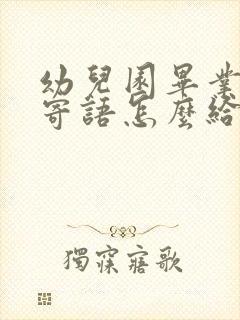 幼兒園畢業
寄語怎麼給
獨寐寤歌